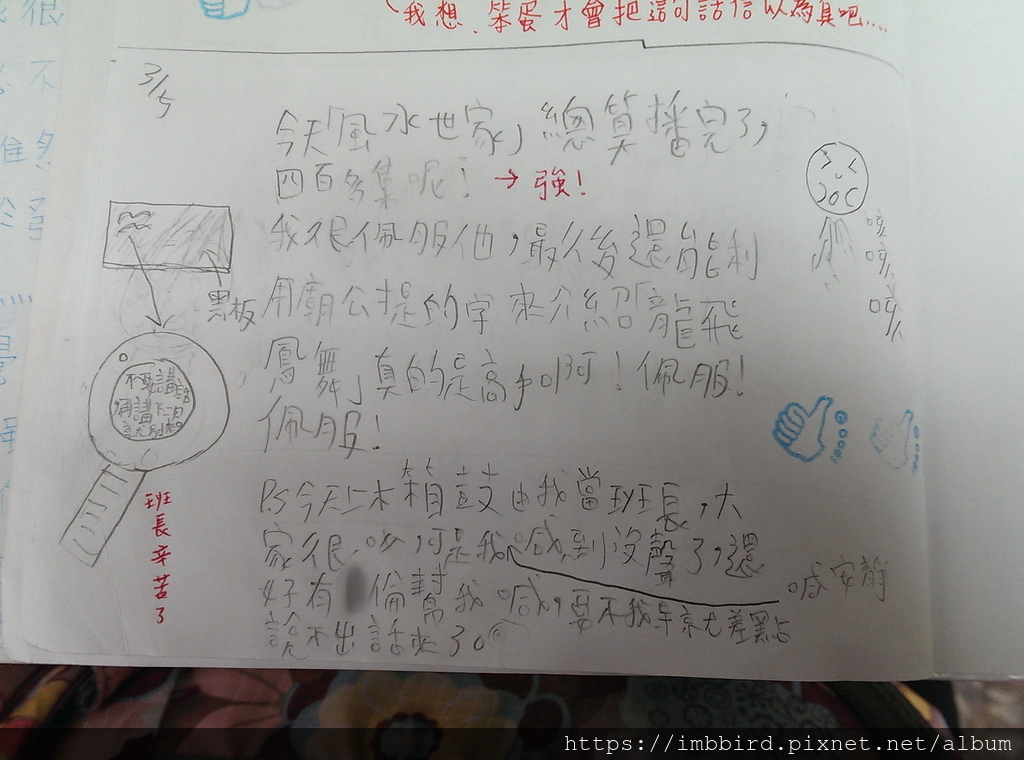 我想,笨蛋才會把這句話信以為真吧....
3/5
今天「風水世家」總算播完了,
四百多集呢! → 強!
我很佩服他,最後還能利
用廟公提的字來介紹「龍飛
鳳舞」真的是高手啊!佩服!
佩服!
黑板
不要講話
再講下次
咳
咳
咳
PS今天上木箱鼓由我當班長,大
家很吵,可是我喊到沒聲了,還
喊安靜
好有 倫幫我喊,要不我早就差點
說不出話來了。
班長辛苦了
https://imbbird.pixnet.net/album